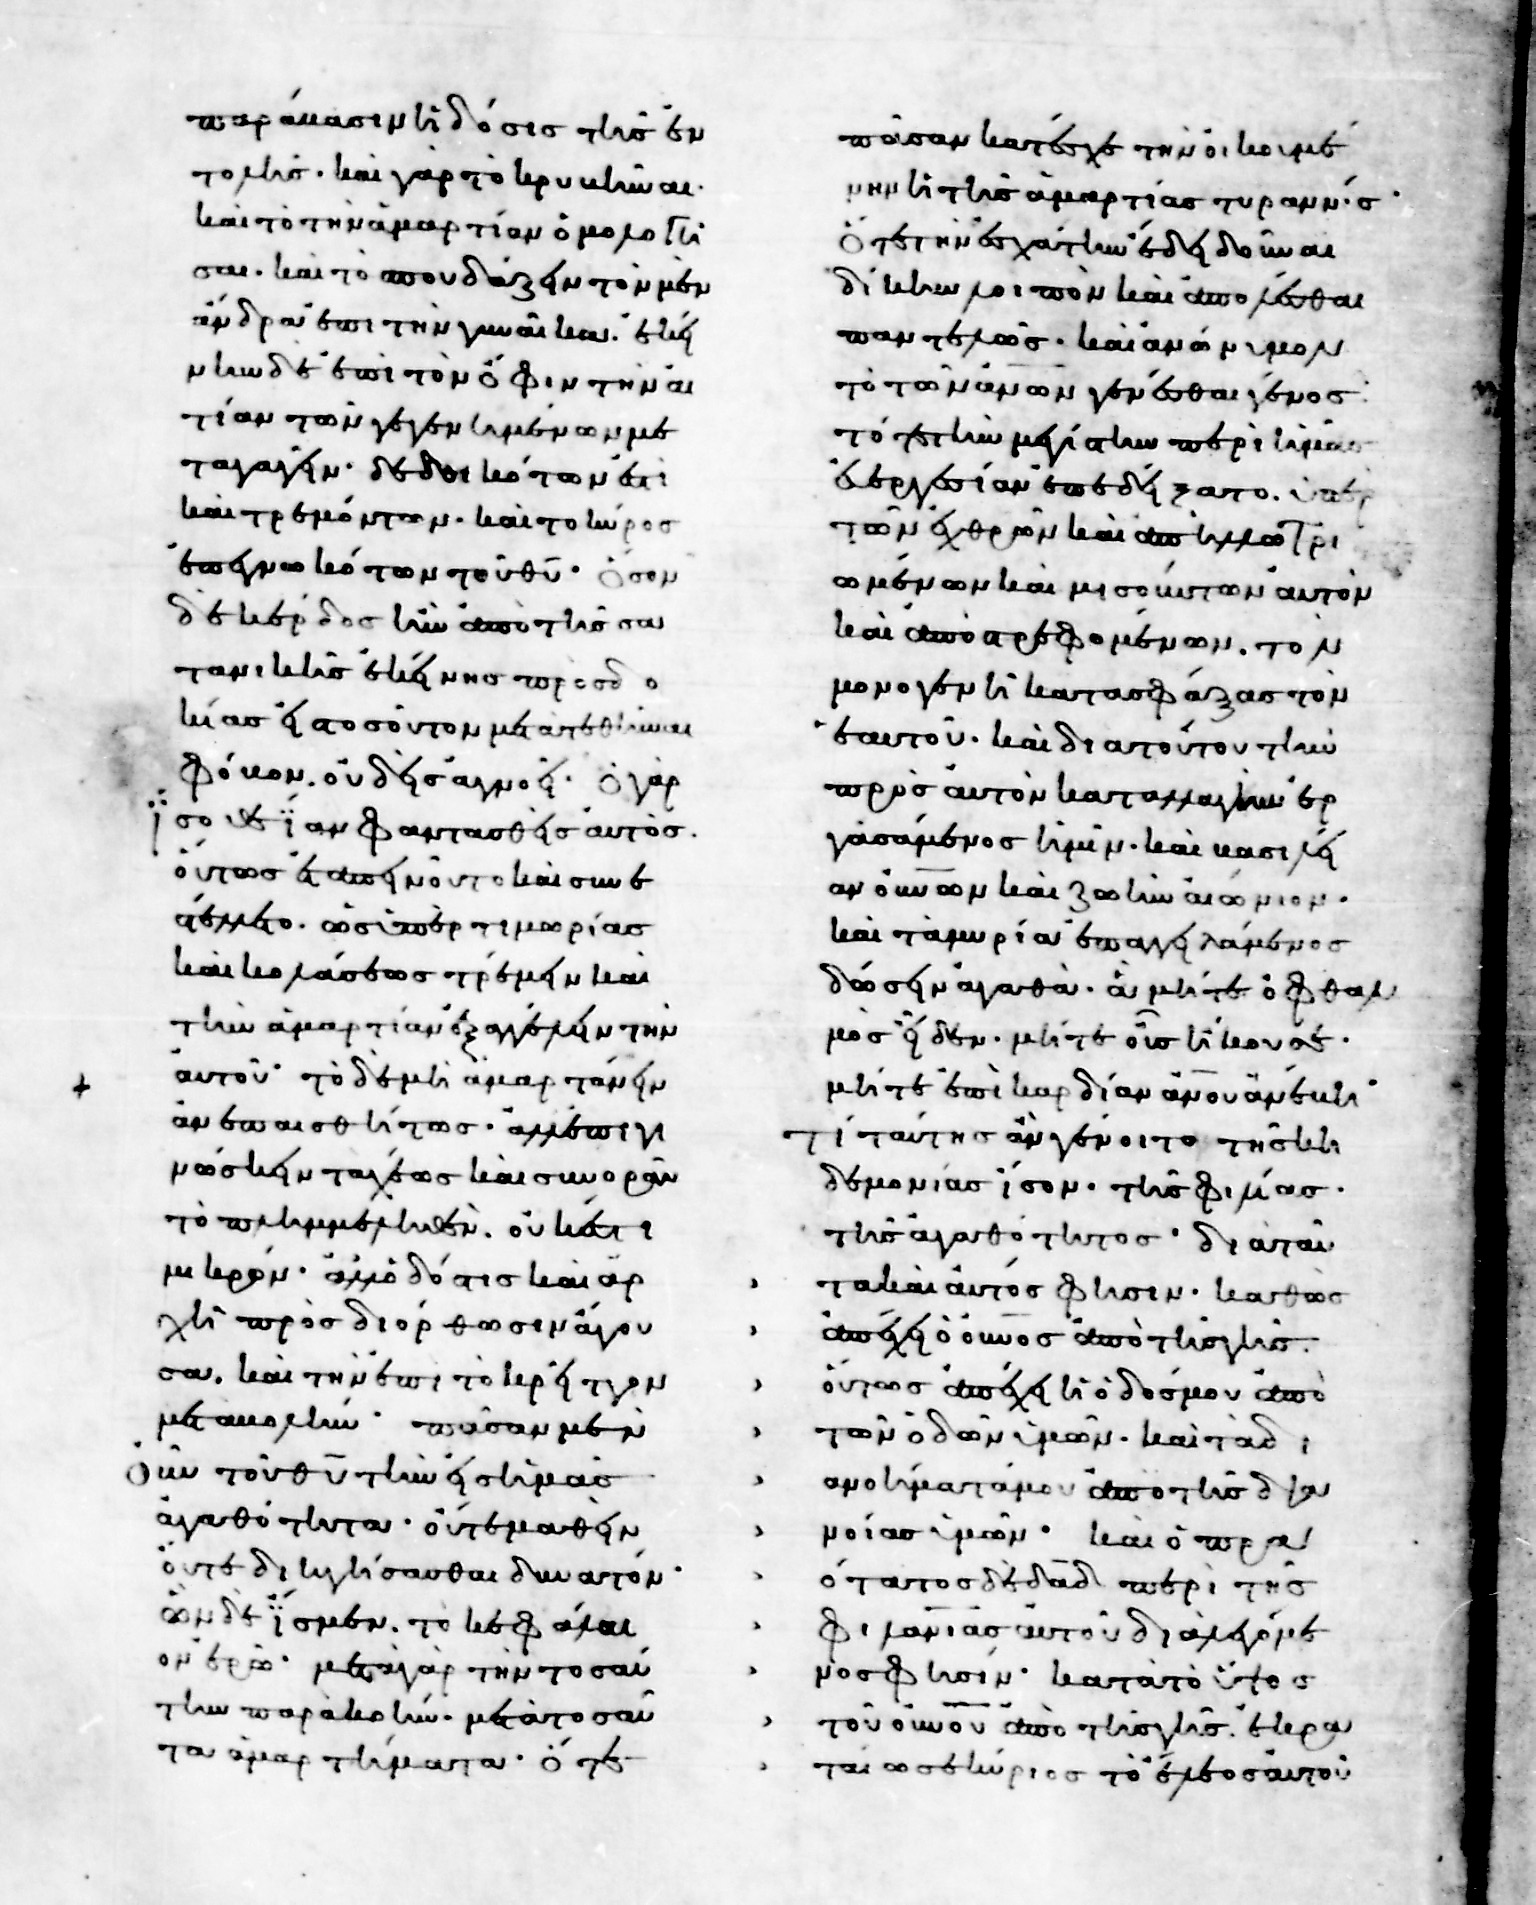 παράβασιν ἡ δόσις τῆς ἐν
τολῆς· καὶ γὰρ τὸ κρυβῆναι·
καὶ τὸ τὴν ἁμαρτίαν ὁμολογῆ
σαι· καὶ τὸ σπουδάζειν τὸν μὲν
ἄνδρα ἐπι τὴν γυναῖκα· ἐκεί
νην δὲ ἐπὶ τὸν ὄφιν τὴν αἰ
τίαν τῶν γεγενημένων με
ταγαγεῖν· δεδοικότων ἐστὶ
καὶ τρεμόντων· καὶ το κύρος
ἐπεγνωκότων τοῦ θυ· ὅσον
δὲ κέρδος ἦν ἀπὸ τῆς σα
τανικῆς ἐκείνης προσδο
κίας εἰς τοσοῦτον μετατεθῆναι
φόβον. οὐδεὶς ἀγνοεῖ· ὁ γὰρ
ϊσοθεΐαν φαντασθεὶς αὐτὸς.
οὕτως ἐταπεινοῦτο καὶ συνε
στέλλετο. ὡς ὑπὲρ τιμωρίας
καὶ κολάσεως τρέμειν καὶ
τὴν ἁμαρτίαν ἐξαγγέλλειν τὴν
αὐτοῦ· τὸ δὲ μὴ ἁμαρτάνειν
ἀνεπαισθήτως· ἀλλ' ἐπιγι
νώσκειν ταχέως καὶ συνορᾶν
τὸ πλημμεληθὲν. οὐκ ἔστι
μικρὸν· ἀλλ' ὁδός τις καὶ ἀρ
χὴ πρὸς διόρθωσιν ἄγου
σα. καὶ τὴν ἐπὶ τὸ κρεῖττον
μεταβολήν· πᾶσαν μὲν
οὖν τοῦ θυ τὴν εἰς ἡμᾶς
ἀγαθότητα· οὔτε μαθεῖν
οὔτε διηγήσασθαι δυνατόν·
ὧν δὲ ἴσμεν. τὸ κεφάλαι
ον ἐρῶ· μετὰ γὰρ τὴν τοσαύ
την παρακοήν· μετὰ τοσαῦ
τα ἁμαρτήματα· ὅτε
πᾶσαν κατέσχε τὴν οἰκουμέ
νην ἡ τῆς ἁμαρτίας τυραννίς·
ὅτε τὴν ἐσχάτην ἔδει δοῦναι
δίκην λοιπὸν καὶ ἀπολέσθαι
παντελῶς· καὶ ἀνώνυμον
τὸ τῶν ἀνων γενέσθαι γένος·
τότε τὴν μεγίστην περὶ ἡμᾶς
εὐεργεσίαν ἐπεδείξατο. ὑπὲρ
τῶν ἐχθρῶν καὶ ἀπηλλοτρι
ωμένων καὶ μισούντων αὐτὸν
καὶ ἀποστρεφομένων. τὸν
μονογενῆ κατασφάξας τὸν
ἑαυτοῦ. καὶ διατοῦτου τὴν
πρὸς αὐτὸν καταλλαγὴν ἐρ
γασάμενος ἡμῖν. καὶ βασιλεί
αν οὐνων καὶ ζωὴν αἰώνιον.
καὶ τὰ μυρία ἐπαγγειλάμενος
δώσειν ἀγαθὰ· ἃ μήτε ὀφθαλ
μὸς εἶδεν· μήτε οὖς ἤκουσε·
μήτε ἐπὶ καρδίαν ἀνου ἀνέβη·
τί ταύτης ἂν γένοιτο τῆς κη
δεμονίας ἴσον· τῆς φιλίας·
τῆς ἀγαθότητος· διὰ ταῦ
τα καὶ αὐτός φησιν· καθὼς
ἀπέχει ὁ οὐνος ἀπὸ τῆς γῆς·
οὕτως ἀπέχει ἡ ὁδός μου ἀπὸ
τῶν ὁδῶν ὑμῶν. καὶ τὰ δι
ανοήματά μου ἀπὸ τῆς δια
νοίας ὑμῶν· καὶ ὁ πρα
ότατος δὲ δαδ περὶ τῆς
φιλανίας αὐτοῦ διαλεγόμε
νος φησίν· κατὰ τὸ ὕψος
τοῦ οὐνοῦ ἀπὸ τῆς γῆς. ἐκρα
ταίωσε κύριος τὸ ἔλεος αὐτοῦ